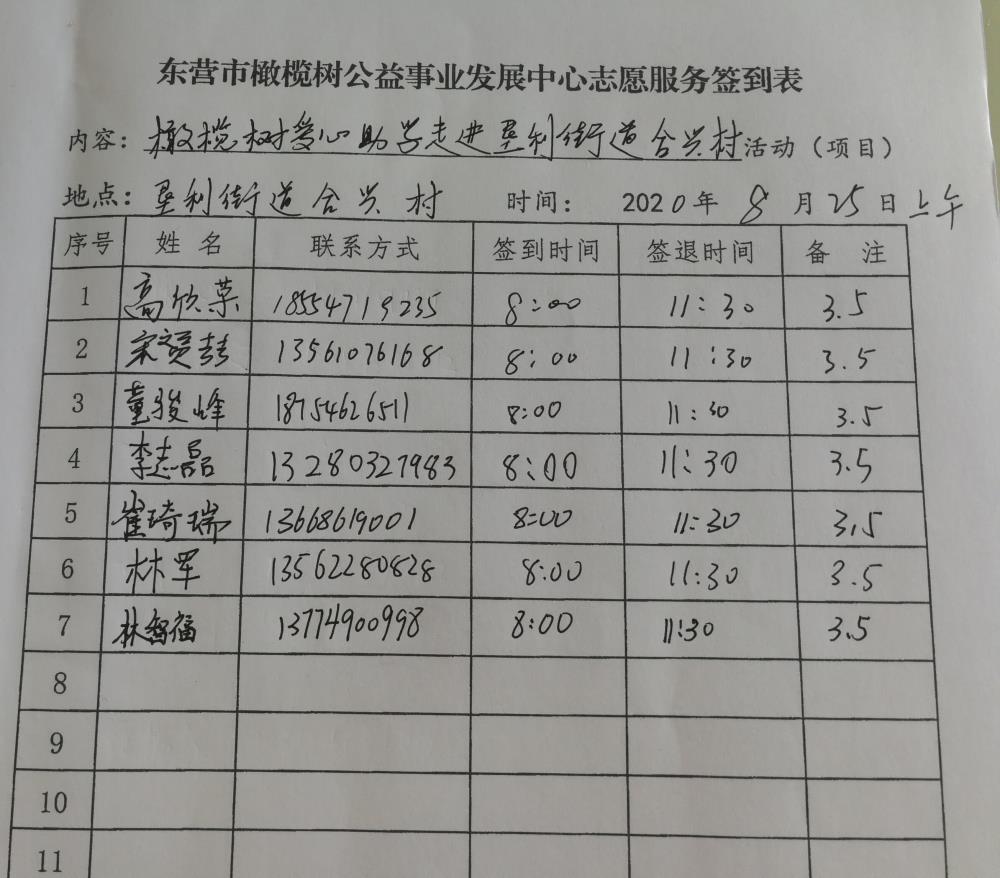 东营市橄榄树公益事业发展中心志愿服务签到表
内容：橄榄树爱心助学走进垦利街道合兴村活动（项目）
地点：垦利街道合兴村 时间： 2020年 8 月 25 日上午
序号 姓名 联系方式 签到时间 签退时间 备 注
1 高欣荣 18554719235 8:00 11:30 3.5
2 13561076168 8:00 11:30 3.5
3 董骏峰 18754626511 8:00 11:30 3.5
4 李志磊 13280327983 8:00 11:30 3.5
5 崔琦瑞 13668619001 8:00 11:30 3.5
6 林军 13562280828 8:00 11:30 3.5
7 林智福 13774900998 8:00 11:30 3.5
8
9
10
11